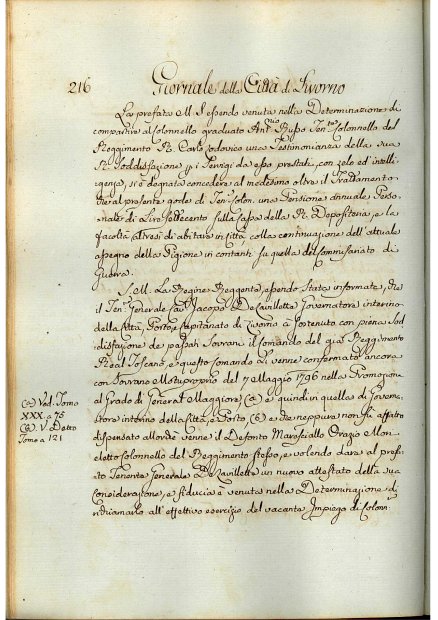 216 Giornale della Città di Livorno
La prefata M. S. essendo venuta nella Determinazione di
compartire al Colonnello graduato Ant.nio Russo Ten.te Colonnello del
Reggimento R. Carlo Lodovico una Testimonianza della sua
R. Soddisfazione p i Servizi da esso prestati con zelo ed intelli-
genza, si è degnata concedere al medesimo oltre il Trattamento
che al presente gode di Ten.e Colon. una Pensione annuale Perso-
nale di Lire Settecento sulla Cassa della R. Depositeria, e la
facoltà altresì di abitare in Città colla continuazione dell'attuale
assegno della Pigione in contanti su quella del Commissariato di
Guerra.
S. M. La Regina Reggente, essendo Stata informata, che
il Ten. Generale Cav. Jacopo De Lavillette Governatore interino
della Città, Porto, e Capitanato di Livorno à sostenuto con piena Sod-
disfazione de' passati Sovrani il comando del Reggimento
Real Toscano, e questo Comando Li venne confermato ancora
con Sovrano Motuproprio del 7 Maggio 1796 nella Promozione
al Grado di General Maggiore, (a) e quindi in quella di Gover-
natore interino della Città, e Porto, (b) e che neppure non fù affatto
dispensato allorchè venne il Defonto Maresciallo Orazio Mor-
eletto Colonnello del Reggimento stesso, e volendo dare al pref.to
Tenente Generale De Lavillette un nuovo attestato della sua
Considerazione, e fiducia è venuta nella Determinazione di
richiamarlo all'effettivo esercizio del vacante Impiego di Colon-
(a) Ved. Tomo
XXX a 75
(b) V. Detto
Tomo a 121